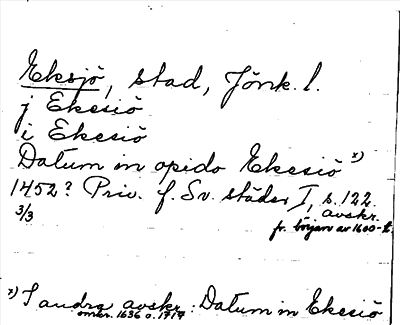 Eksjö, stad, Jönk. l.
j Ekesiö
i Ekesiö
Datum in opido Ekesiö x)
1452? Priv. f. Sv. städer I, s. 122.
3/3 avskr.
fr. början av 1600-t.
x) I andra avskr.: Datum in Ekesiö
omkr. 1636 o. 1717